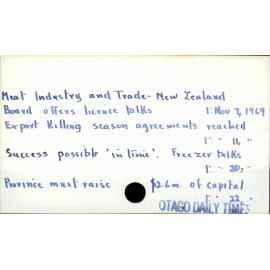 Meat Industry and Trade - New Zealand
Board offers licence talks 1: Nov 7, 1969
Export Killing season agreements reached
1: " 11, "
Success possible 'in time'. Freezer talks
1: " 20, "
Province must raise $26m of capital
1: " 22, "
OTAGO DAILY TIMES